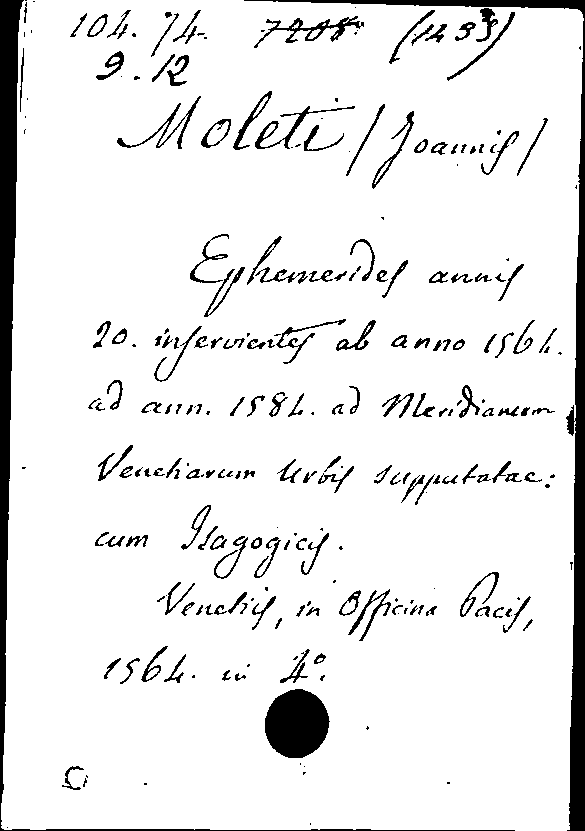 104.74. 7208. (1433)
9.12
Moleti / Joannis /
Ephemerides annis
20. inservientes ab anno 1564.
ad ann. 1584. ad Meridianum
Venetiarum Urbis supputatae:
cum Isagogicis.
Venetiis, in Officina Pacis,
1564. in 4°.